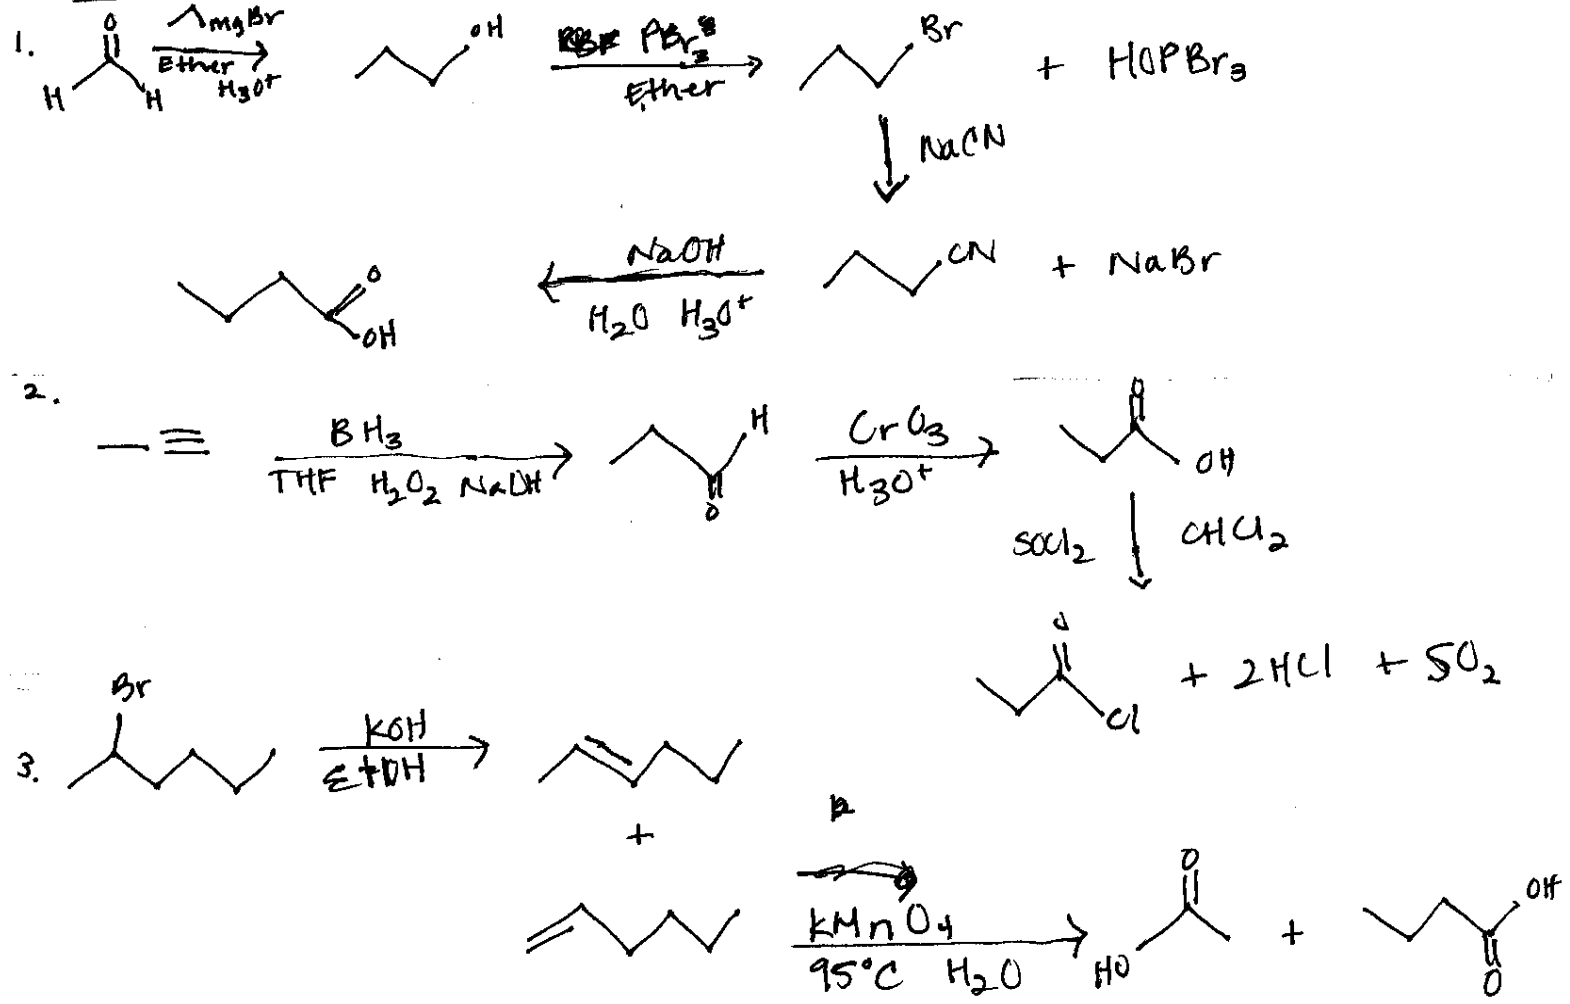 1.
O
H H
MgBr
Ether
H3O+
OH
PBr3
Ether
Br
+ HOPBr3
NaCN
CN + NaBr
NaOH
H2O H3O+
O
OH
2.
BH3
THF H2O2 NaOH
H
O
CrO3
H3O+
O
OH
SOCl2 CHCl2
O
Cl
+ 2HCl + SO2
3.
Br
KOH
EtOH
+
KMnO4
95°C H2O
O
HO
+
OH
O